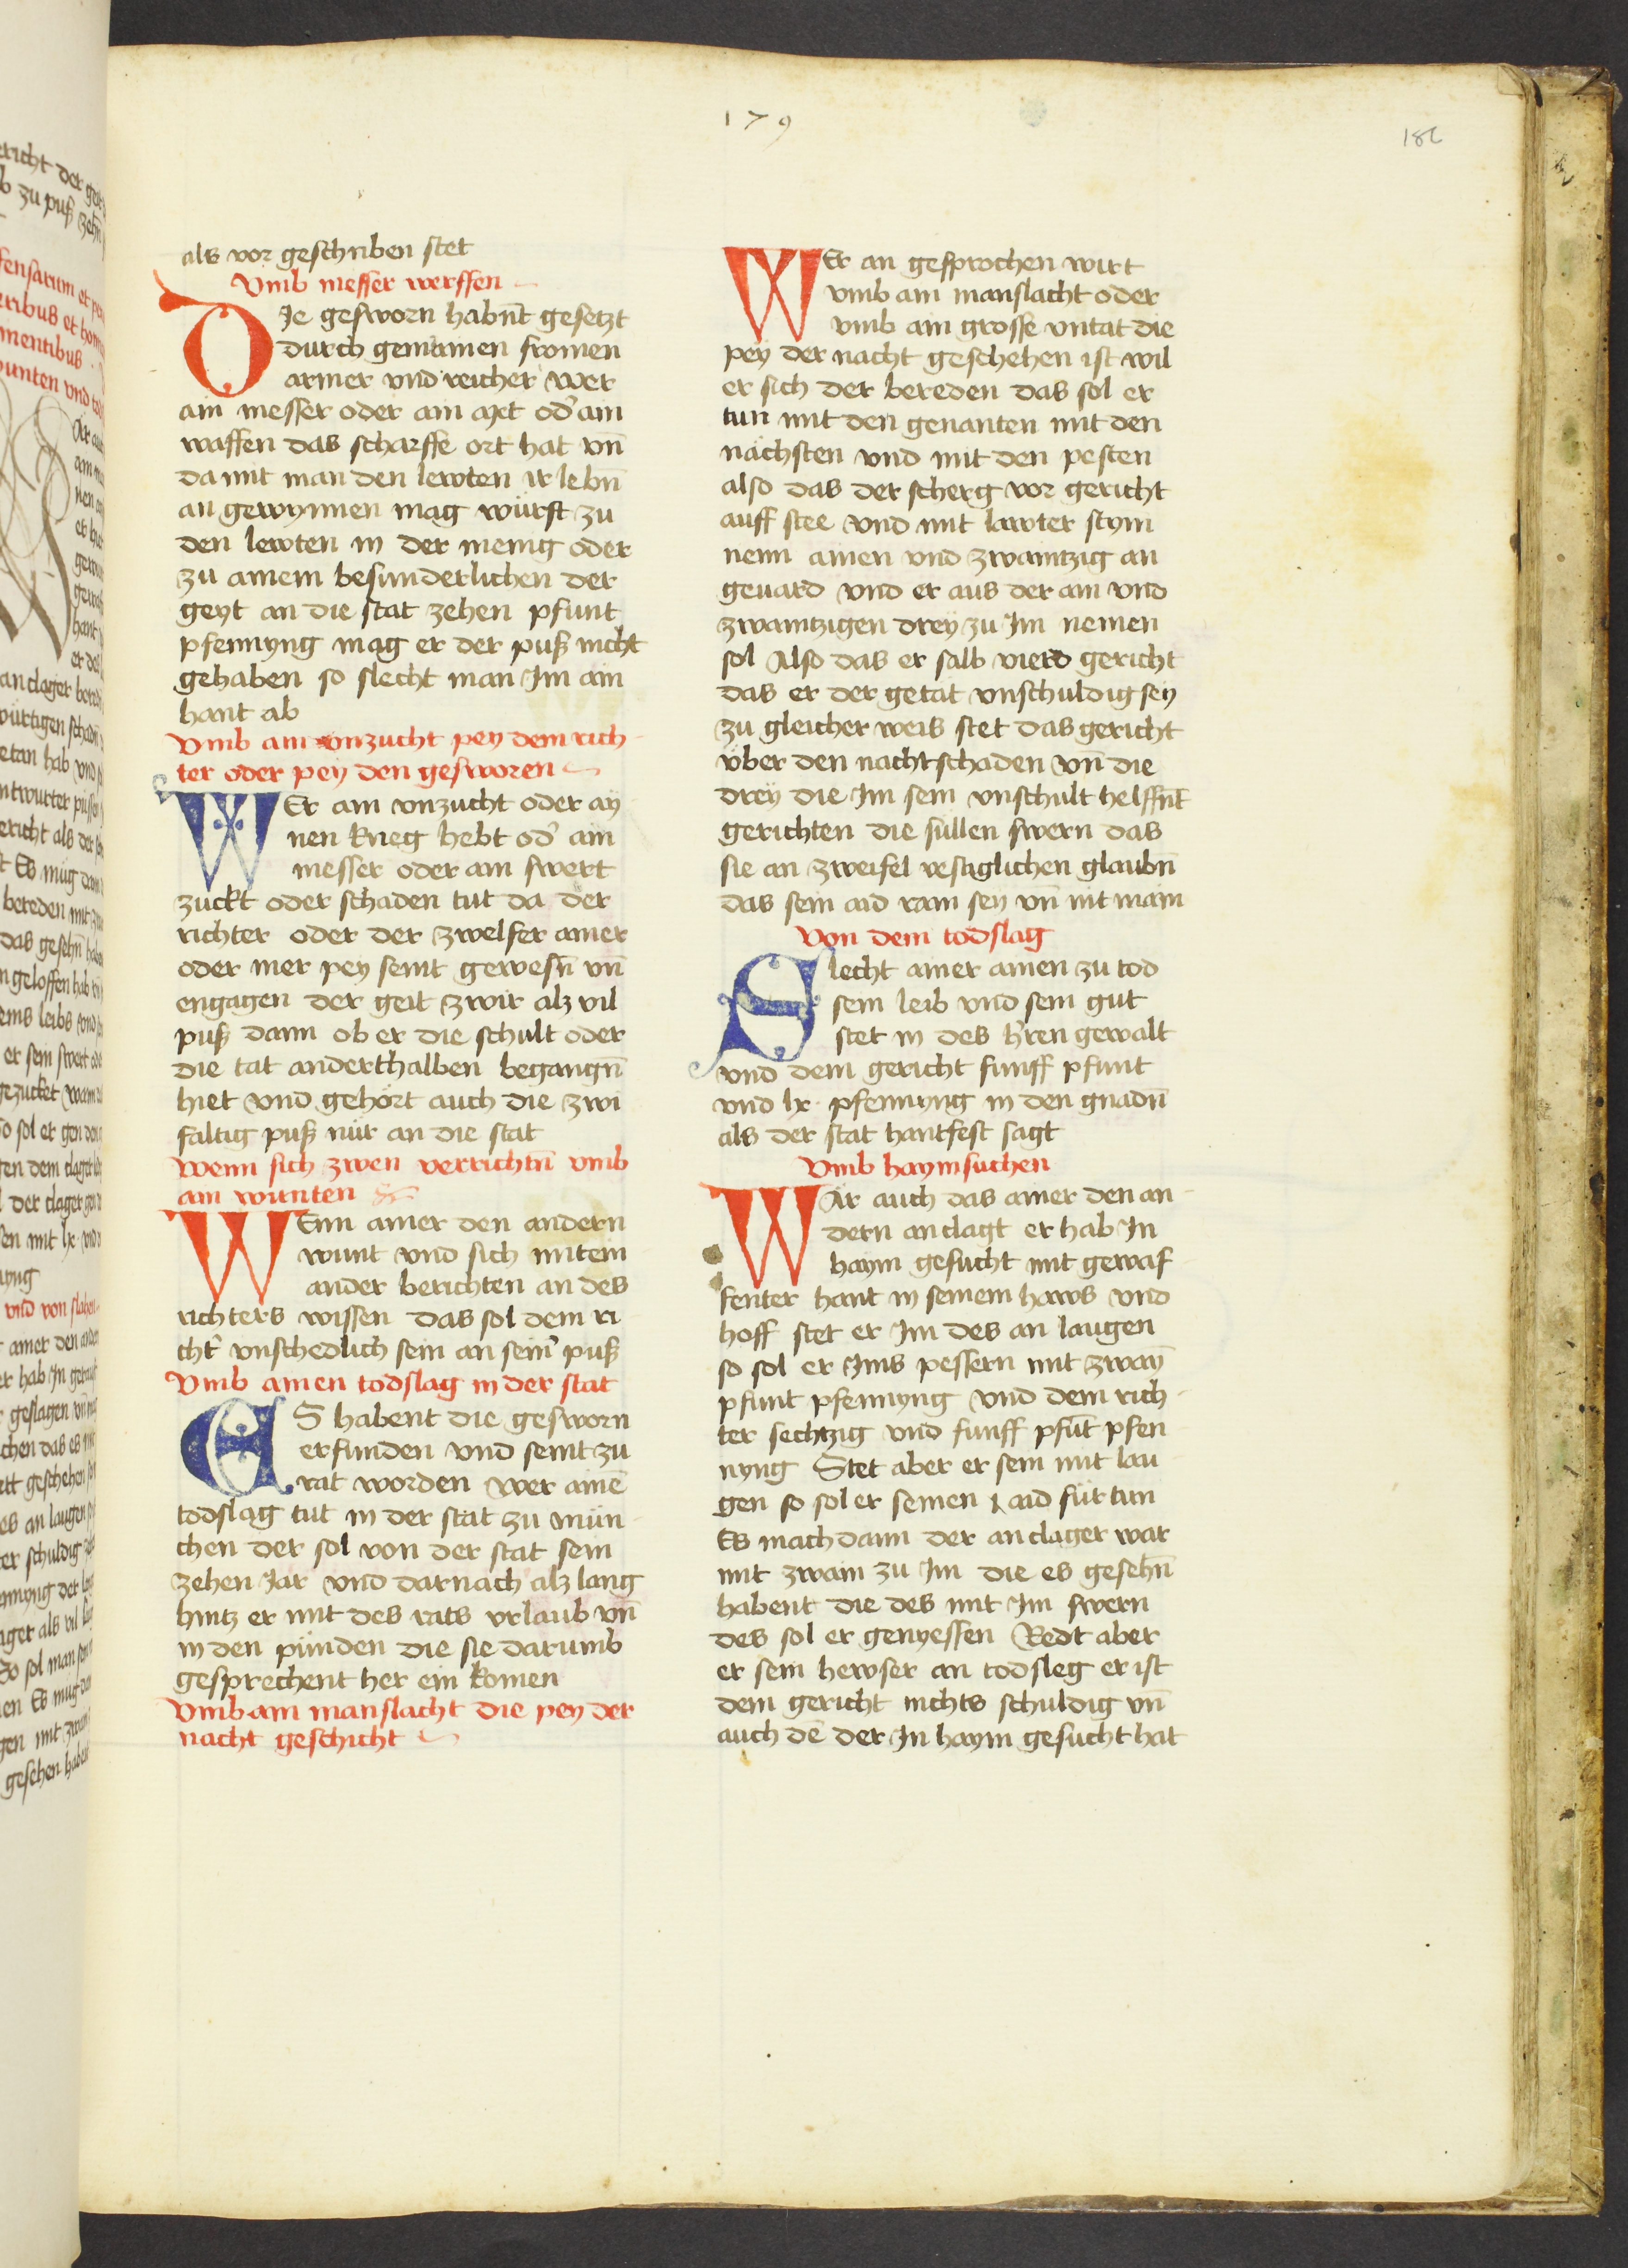 179
als vor geschriben stet
Vmb messer werffen
DJe gesworn habnt gesetzt
durch gemainen fromen
armer vnd reicher Wer
ain messer oder ain axt od' ain
waffen das scharffe ort hat vn̄
da mit man den lewten ir lebn̄
an gewynnen mag würft zu
den lewten in der menig oder
zu ainem besunderlichen der
geyt an die stat zehen pfunt
pfennyng mag er der puß nicht
gehaben so slecht man Im ain
hant ab
Vmb ain vnzucht pey dem rich
ter oder pey den gesworen
WEr ain vnzucht oder ay
nen krieg hebt od' ain
messer oder ain swert
zuckt oder schaden tut da der
richter oder der zwelfer ainer
oder mer pey seint gewesn̄ vn̄
engagen der geit zwir alz vil
puß dann ob er die schult oder
die tat anderthalben begangn̄
hiet vnd gehört auch die zwi
faltig puß nür an die stat
Wenn sich zwen verrichtn̄ vmb
ain wunten
WEnn ainer den andern
wunt vnd sich mitein
ander berichten an des
richters wissen das sol dem ri
cht' vnschedlich sein an sein' puß
Vmb ainen todslag in der stat
ES habent die gesworn
erfunden vnd seint zu
rat worden wer ainē
todslag tut in der stat zu mün
chen der sol von der stat sein
zehen Jar vnd darnach alz lang
hintz er mit des rats vrlaub vn̄
in den pünden die sie darumb
gesprechent her ein komen
Vmb ain manslacht die pey der
nacht geschicht
WEr an gesprochen wirt
vmb ain manslacht oder
vmb ain grosse vntat die
pey der nacht geschehen ist wil
er sich der bereden das sol er
tun mit den genanten mit den
nächsten vnd mit den pesten
also das der scherg vor gericht
auff stee vnd mit lawter stym
nenn ainen vnd zwaintzig an
geuard vnd er aus der ain vnd
zwaintzigen drey zu Im nemen
sol Also das er salb vierd gericht
das er der getat vnschuldig sey
zu gleicher weis stet das gericht
vber den nachtschaden vn̄ die
drey die Im sein vnschult helffn̄t
gerichten die süllen swern das
sie an zweifel vestiglichen glaubn̄
das sein aid rain sey vn̄ nit main
Von dem todslag
Slecht ainer ainen zu tod
sein leib vnd sein gut
stet in des h'ren gewalt
vnd dem gericht funff pfunt
vnd lx pfennyng in den gnadn̄
als der stat hantfest sagt
Vmb haymsuchen
WÄr auch das ainer den an
dern anclagt er hab In
haym gesucht mit gewaf
fenter hant in seinem haws vnd
hoff stet er Im des an laugen
so sol er Jms pessern mit zwayn
pfunt pfennyng vnd dem rich
ter sechtzig vnd funff pfūt pfen
nyng Stet aber er sein mit lau
gen so sol er seinen aid für tun
Es mach dann der anclager war
mit zwain zu Im die es gesehn̄
habent die des mit Im swern
des sol er genyessen Redt aber
er sein hewser an todsleg er ist
dem gericht nichts schuldig vn̄
auch dē der In haym gesucht hat